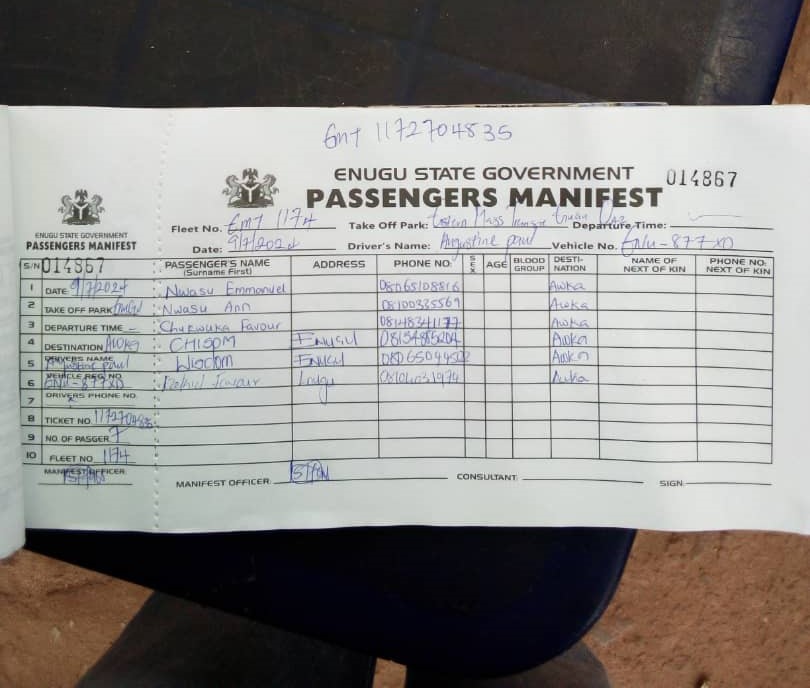 Emt 1172704835
ENUGU STATE GOVERNMENT
PASSENGERS MANIFEST
014867
Fleet No. Emt 1174 Take Off Park: Mass Departure Time:
Date: 9/7/2024 Driver's Name: Augustine paul Vehicle No. ENU-877XD
PASSENGER'S NAME (Surname First) ADDRESS PHONE NO: SEX AGE BLOOD GROUP DESTI-NATION NAME OF NEXT OF KIN PHONE NO: NEXT OF KIN
Nwasu Emmanuel 08065108816 Awka
Nwasu Ann 08100335569 Awka
Chukwuka Favour Awka
CHISOM Enugu Awka
Wisdom Enugu Awka
Favour Awka
MANIFEST OFFICER: CONSULTANT: SIGN:
ENUGU STATE GOVERNMENT
PASSENGERS MANIFEST
S/N 014867
1 DATE 9/7/2024
2 TAKE OFF PARK
3 DEPARTURE TIME –
4 DESTINATION Awka
5 DRIVERS NAME paul
6 VEHICLE REG NO. ENU-877XD
7 DRIVERS PHONE NO.
8 TICKET NO. 1172704835
9 NO. OF PASGER. 7
10 FLEET NO 1174
MANIFEST OFFICER: